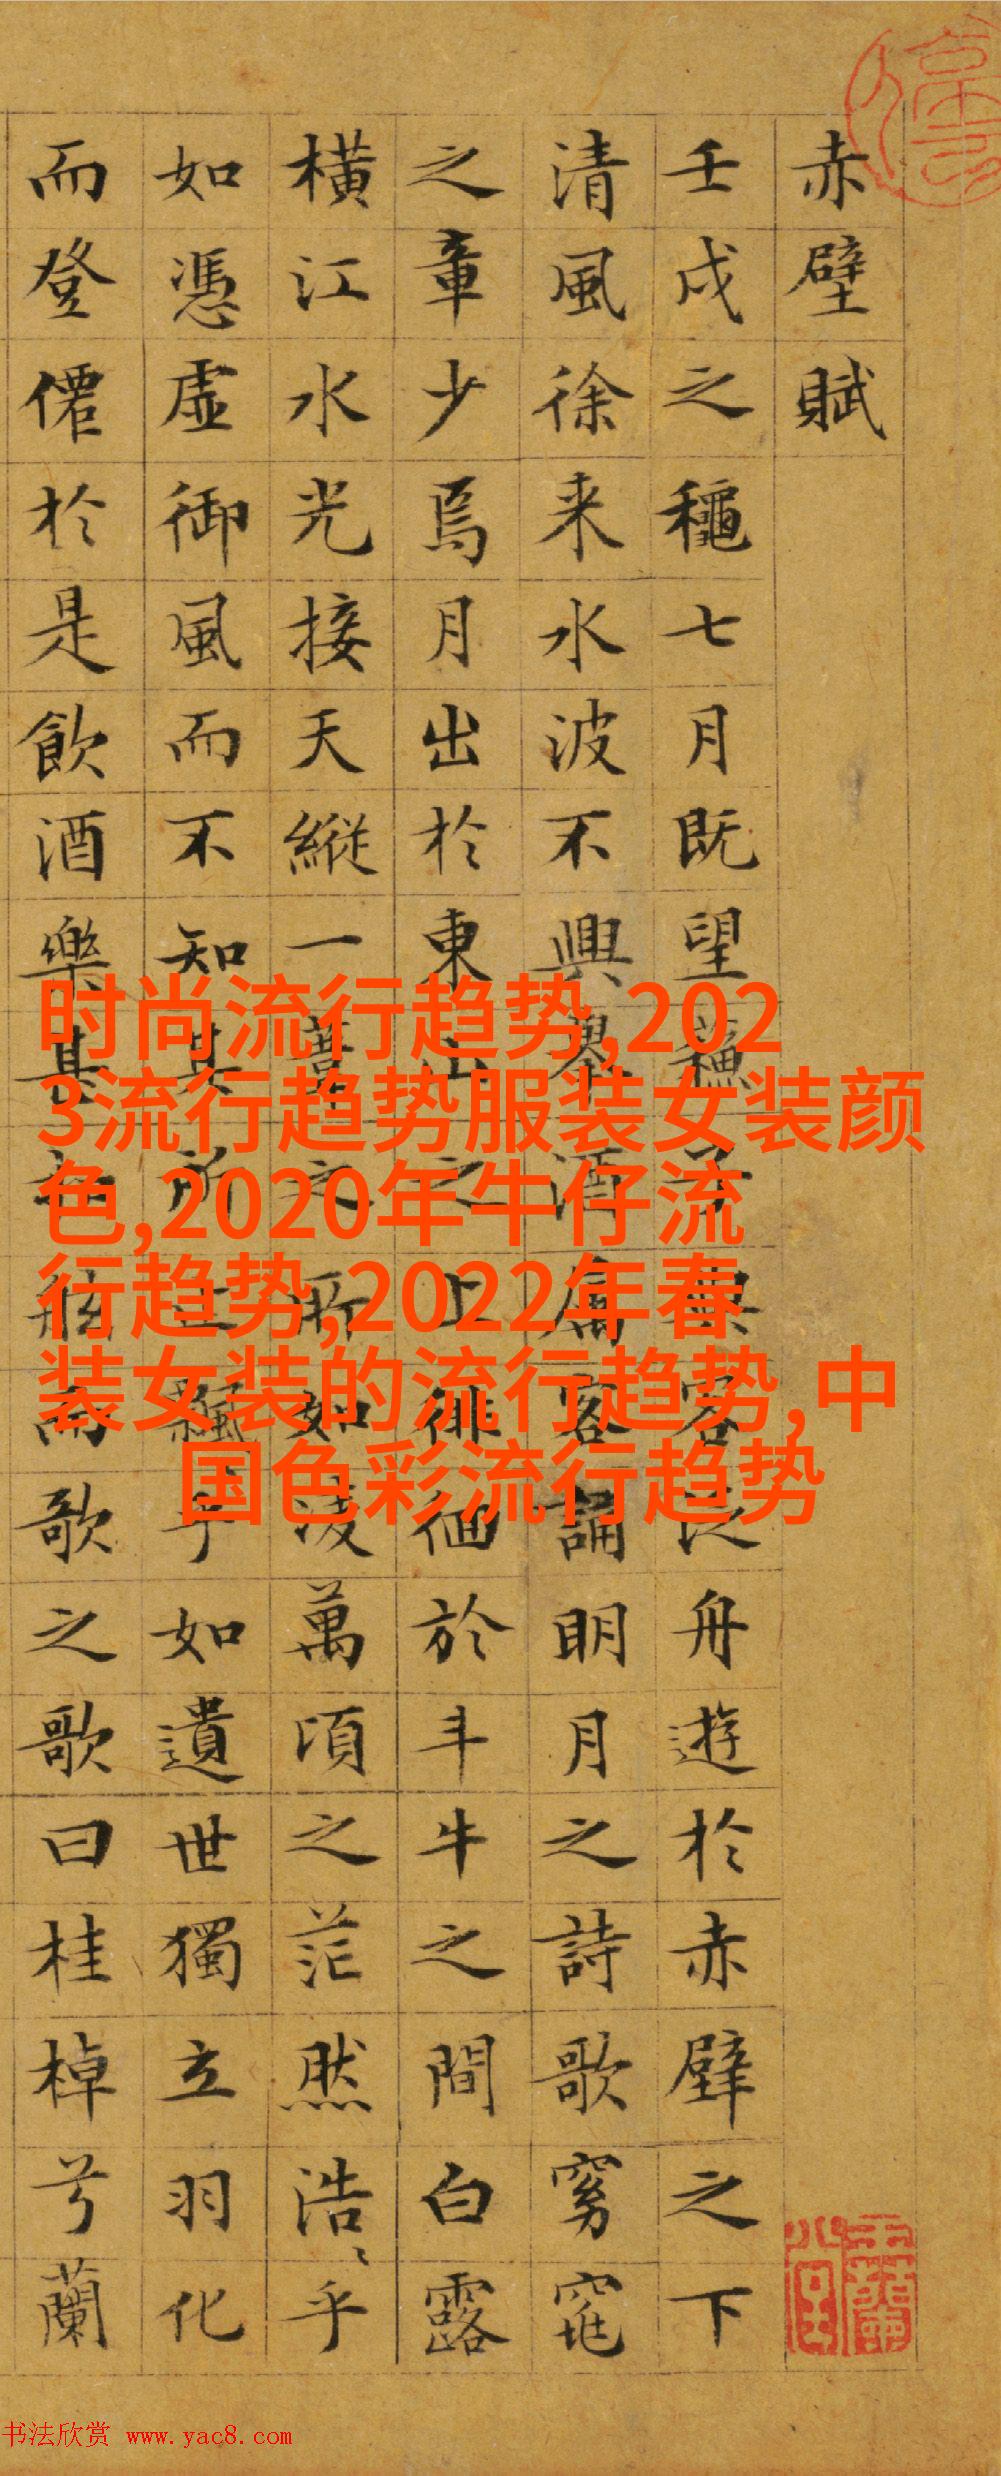 赤壁賦
壬戌之龝七月既望蘓子與客泛舟遊於赤壁之下
清風徐来水波不興舉酒屬客誦明月之詩歌窈窕
之章少焉月出於東山之上徘徊於斗牛之間白露
橫江水光接天縱一葦之所如淩萬頃之茫然浩〻乎
如憑虛御風而不知其所止飄乎如遺世獨立羽化
而登僊於是飲酒樂甚扣舷而歌之歌曰桂棹兮蘭
时尚流行趋势,202
3流行趋势服装女装颜
色,2020年牛仔流
行趋势,2022年春
装女装的流行趋势,中
国色彩流行趋势
书法欣赏 www.yac8.com